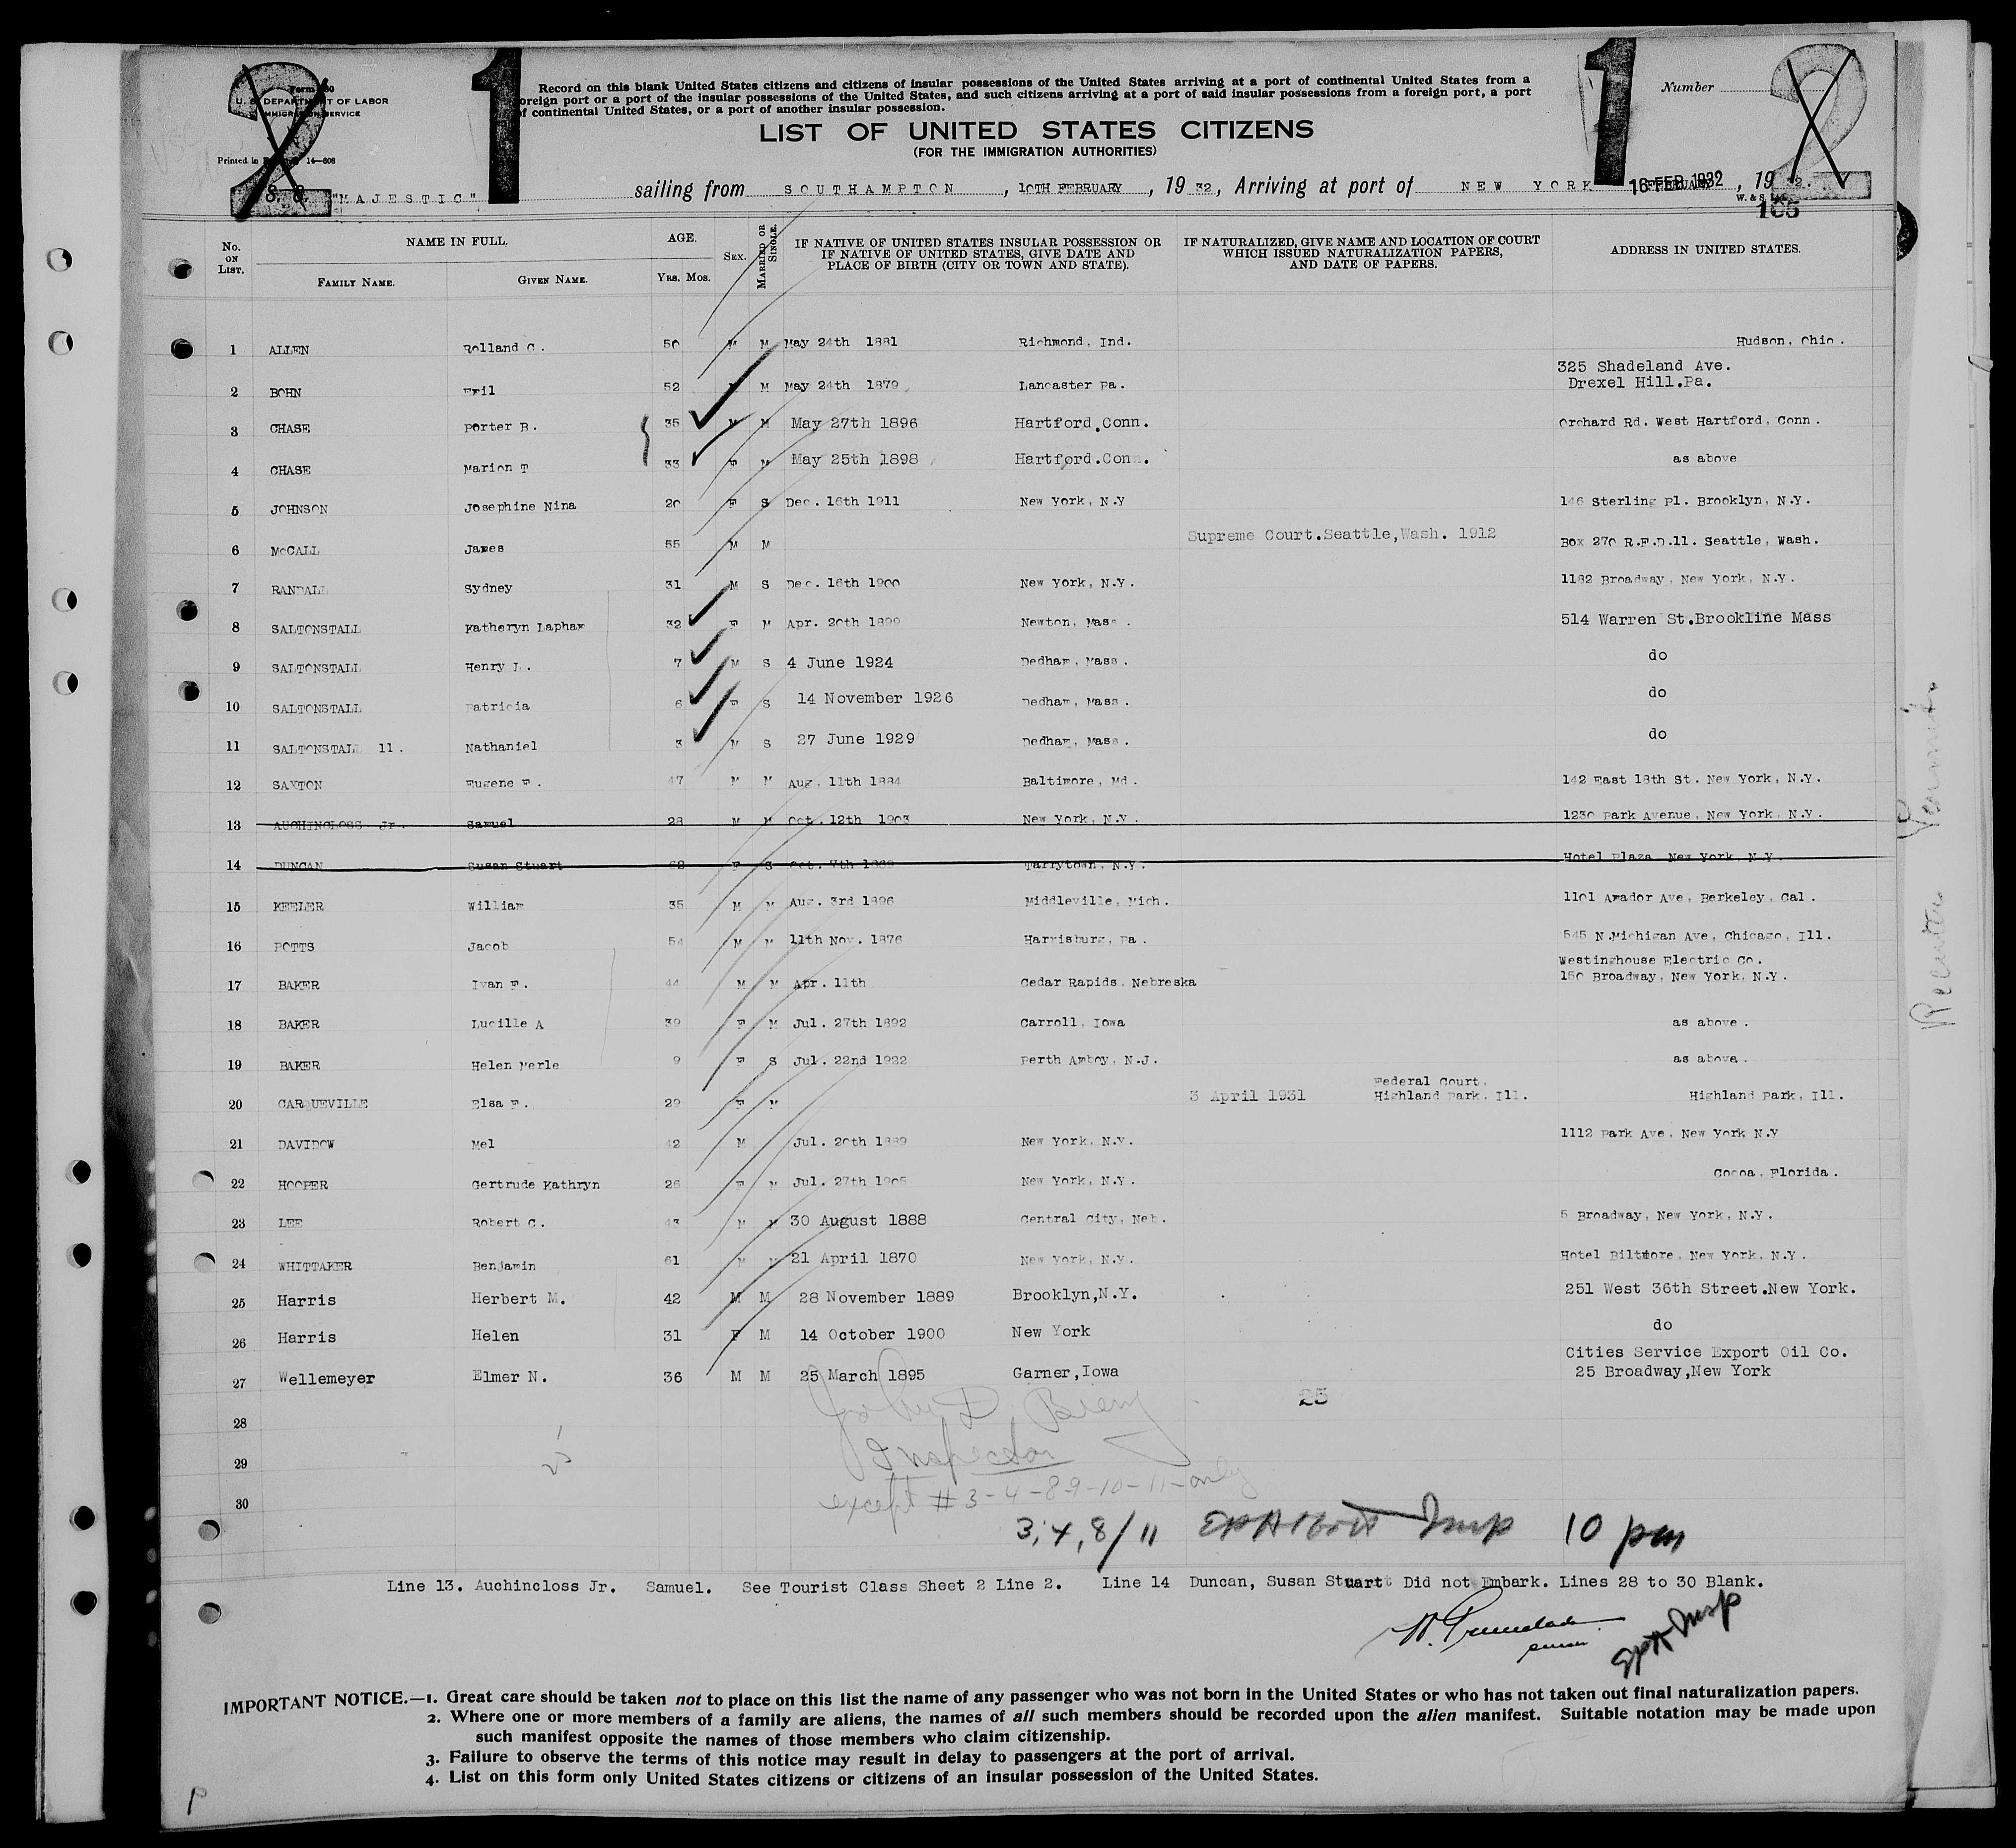 Form 630
U. S. DEPARTMENT OF LABOR
IMMIGRATION SERVICE
Printed in 14—608
2 1 1 2
Record on this blank United States citizens and citizens of insular possessions of the United States arriving at a port of continental United States from a
foreign port or a port of the insular possessions of the United States, and such citizens arriving at a port of said insular possessions from a foreign port, a port
of continental United States, or a port of another insular possession.
Number
LIST OF UNITED STATES CITIZENS
(FOR THE IMMIGRATION AUTHORITIES)
S. S. "MAJESTIC" sailing from SOUTHAMPTON, 10TH FEBRUARY, 19 32, Arriving at port of NEW YORK 16 FEB 1932, 19 32.
W. & S. Ltd.
165
No. on List. NAME IN FULL. AGE. Sex. Married or Single. IF NATIVE OF UNITED STATES INSULAR POSSESSION OR IF NATIVE OF UNITED STATES, GIVE DATE AND PLACE OF BIRTH (CITY OR TOWN AND STATE). IF NATURALIZED, GIVE NAME AND LOCATION OF COURT WHICH ISSUED NATURALIZATION PAPERS, AND DATE OF PAPERS. ADDRESS IN UNITED STATES.
Family Name. Given Name. Yrs. Mos.
1 ALLEN Rolland C. 50 M M May 24th 1881 Richmond, Ind. Hudson, Ohio.
2 BOHN Emil 52 M M May 24th 1879 Lancaster Pa. 325 Shadeland Ave. Drexel Hill.Pa.
3 CHASE Porter B. 35 M M May 27th 1896 Hartford.Conn. Orchard Rd. West Hartford, Conn.
4 CHASE Marion T 33 F M May 25th 1898 Hartford.Conn. as above
5 JOHNSON Josephine Nina 20 F S Dec. 16th 1911 New York, N.Y 146 Sterling Pl. Brooklyn, N.Y.
6 McCALL James 55 M M Supreme Court.Seattle,Wash. 1912 Box 270 R.F.D.11. Seattle, Wash.
7 RANDALL Sydney 31 M S Dec. 16th 1900 New York, N.Y. 1182 Broadway, New York, N.Y.
8 SALTONSTALL Katheryn Lapham 32 F M Apr. 20th 1899 Newton, Mass. 514 Warren St.Brookline Mass
9 SALTONSTALL Henry L. 7 M S 4 June 1924 Dedham, Mass. do
10 SALTONSTALL Patricia 6 F S 14 November 1926 Dedham, Mass. do
11 SALTONSTALL 11. Nathaniel 3 M S 27 June 1929 Dedham, Mass. do
12 SAXTON Eugene F. 47 M M Aug. 11th 1884 Baltimore, Md. 142 East 18th St. New York, N.Y.
13 AUCHINCLOSS Jr. Samuel 28 M M Oct. 12th 1903 New York, N.Y. 1230 Park Avenue, New York, N.Y.
14 DUNCAN Susan Stuart 62 F S Oct. 7th 1869 Tarrytown, N.Y. Hotel Plaza New York N.Y.
15 KEELER William 35 M M Aug. 3rd 1896 Middleville, Mich. 1101 Amador Ave, Berkeley, Cal.
16 POTTS Jacob 54 M M 11th Nov. 1876 Harrisburg, Pa. 545 N.Michigan Ave, Chicago, Ill.
17 BAKER Ivan F. 44 M M Apr. 11th Cedar Rapids, Nebreska Westinghouse Electric Co. 150 Broadway, New York, N.Y.
18 BAKER Lucille A 39 F M Jul. 27th 1892 Carroll, Iowa as above.
19 BAKER Helen Merle 9 F S Jul. 22nd 1922 Perth Amboy, N.J. as above.
20 CARQUEVILLE Elsa F. 29 F M 3 April 1931 Federal Court, Highland Park, Ill. Highland Park, Ill.
21 DAVIDOW Mel 42 M Jul. 20th 1889 New York, N.Y. 1112 Park Ave, New York N.Y
22 HOOPER Gertrude Kathryn 26 F M Jul. 27th 1905 New York, N.Y. Cocoa, Florida.
23 LEE Robert C. 43 M M 30 August 1888 Central City, Neb. 5 Broadway, New York, N.Y.
24 WHITTAKER Benjamin 61 M M 21 April 1870 New York, N.Y. Hotel Biltmore, New York, N.Y.
25 Harris Herbert M. 42 M M 28 November 1889 Brooklyn,N.Y. 251 West 36th Street.New York.
26 Harris Helen 31 F M 14 October 1900 New York do
27 Wellemeyer Elmer N. 36 M M 25 March 1895 Garner,Iowa Cities Service Export Oil Co. 25 Broadway,New York
25
28
29
30
John D.
Inspector
except # 3-4-8-9-10-11-only
3, 4, 8/11 Insp 10 pm
Line 13. Auchincloss Jr. Samuel. See Tourist Class Sheet 2 Line 2. Line 14 Duncan, Susan Stuart Did not Embark. Lines 28 to 30 Blank.
Insp
IMPORTANT NOTICE.—1. Great care should be taken not to place on this list the name of any passenger who was not born in the United States or who has not taken out final naturalization papers.
2. Where one or more members of a family are aliens, the names of all such members should be recorded upon the alien manifest. Suitable notation may be made upon
such manifest opposite the names of those members who claim citizenship.
3. Failure to observe the terms of this notice may result in delay to passengers at the port of arrival.
4. List on this form only United States citizens or citizens of an insular possession of the United States.
P